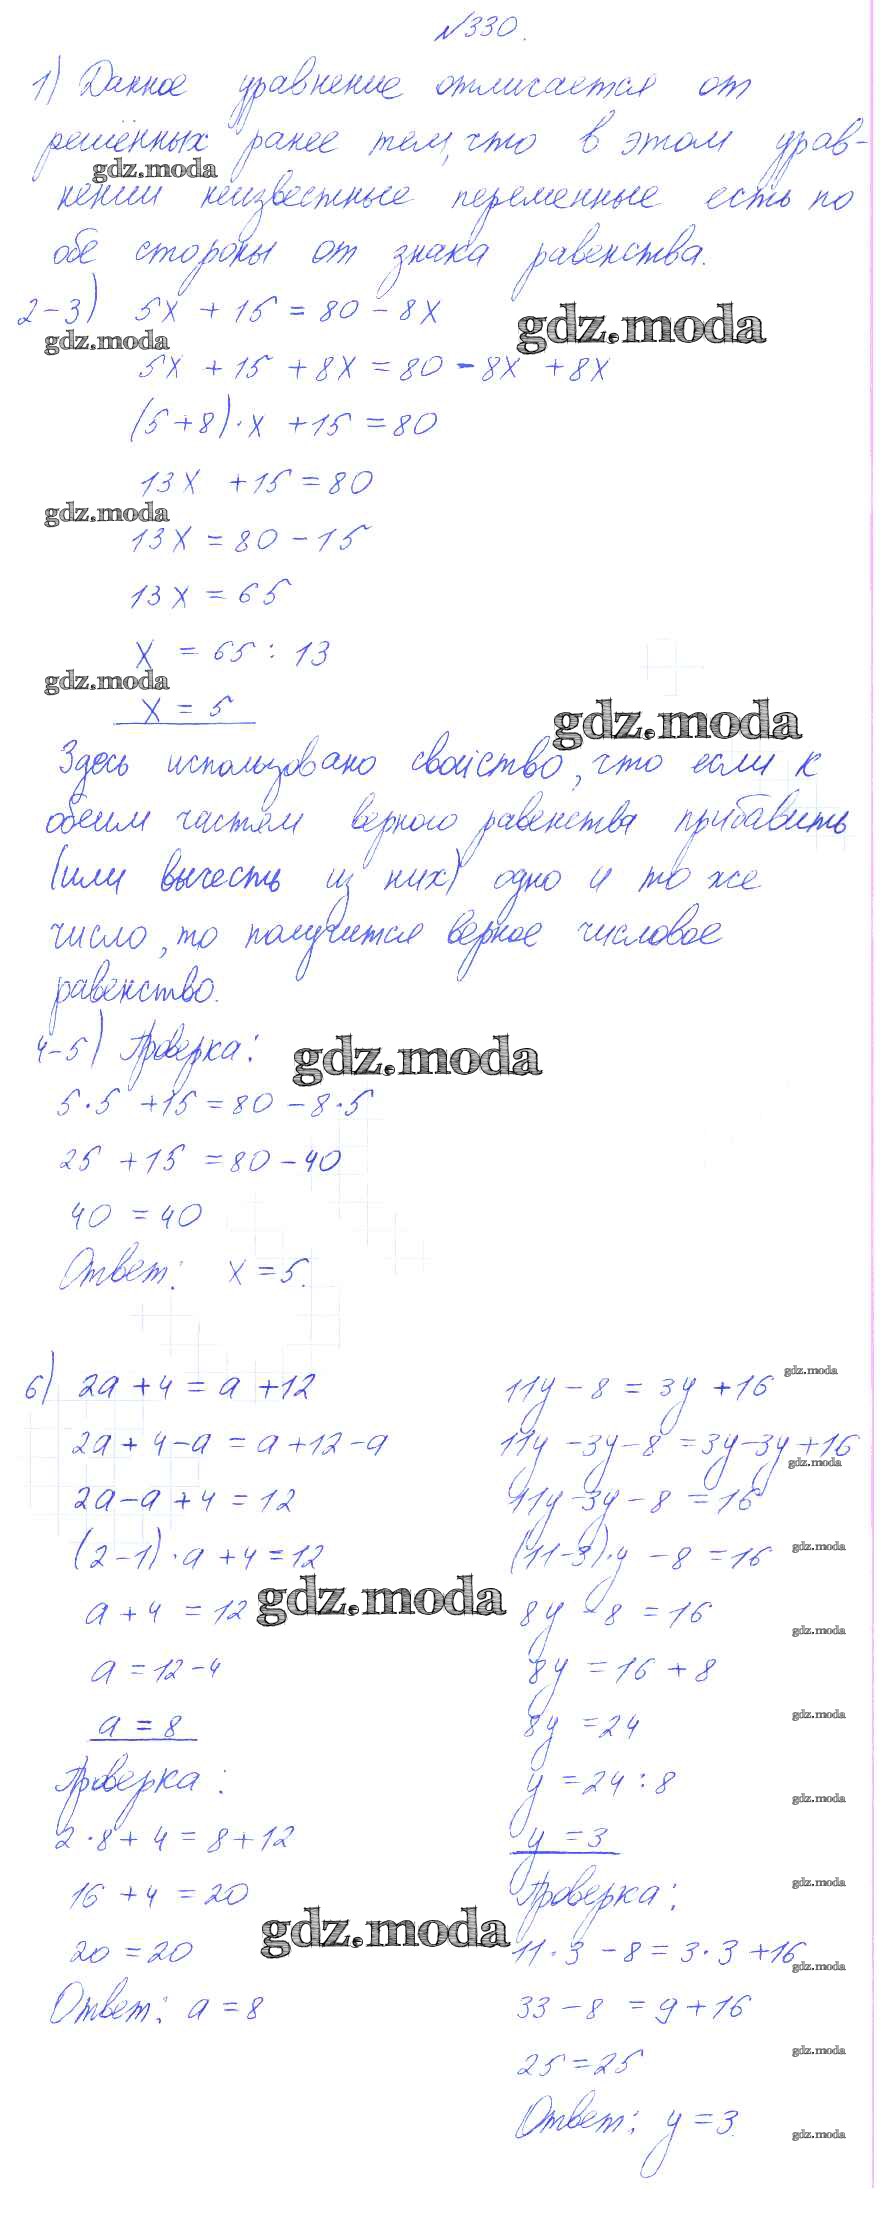 №330.
1) Данное уравнение отличается от
решённых ранее тем, что в этом урав-
gdz.moda
нении неизвестные переменные есть по
обе стороны от знака равенства.
2-3) 5x + 15 = 80 - 8x
gdz.moda
gdz.moda
5x + 15 + 8x = 80 - 8x + 8x
(5+8)·x + 15 = 80
13x + 15 = 80
gdz.moda
13x = 80 - 15
13x = 65
x = 65 : 13
gdz.moda
x = 5
gdz.moda
Здесь использовано свойство, что если к
обеим частям верного равенства прибавить
(или вычесть из них) одно и то же
число, то получится верное числовое
равенство.
4-5) Проверка:
gdz.moda
5·5 + 15 = 80 - 8·5
25 + 15 = 80 - 40
40 = 40
Ответ: x = 5.
6) 2a + 4 = a + 12
2a + 4 - a = a + 12 - a
2a - a + 4 = 12
(2-1)·a + 4 = 12
a + 4 = 12
gdz.moda
a = 12 - 4
a = 8
Проверка:
2·8 + 4 = 8 + 12
16 + 4 = 20
gdz.moda
20 = 20
Ответ: a = 8
gdz.moda
11y - 8 = 3y + 16
11y - 3y - 8 = 3y - 3y + 16
gdz.moda
11y - 3y - 8 = 16
gdz.moda
(11-3)·y - 8 = 16
8y - 8 = 16
gdz.moda
8y = 16 + 8
gdz.moda
8y = 24
y = 24 : 8
gdz.moda
y = 3
gdz.moda
Проверка:
11·3 - 8 = 3·3 + 16
gdz.moda
33 - 8 = 9 + 16
gdz.moda
25 = 25
Ответ: y = 3.
gdz.moda